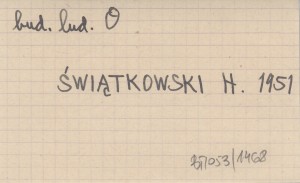 bud. lud. O
ŚWIĄTKOWSKI H. 1951
/053/1468